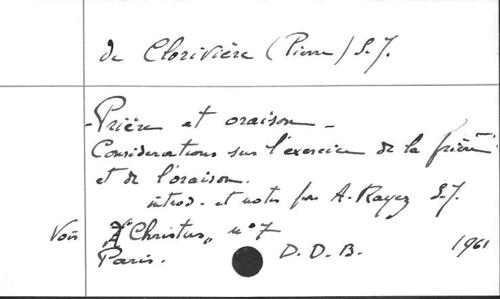 de Clorivière (Pierre) S.J.
- Prière et oraison -
Considérations sur l'exercice de la prière
et de l'oraison.
introd. et notes par A. Rayez S.J.
Voir "Christus" n°7
Paris. D.D.B. 1961